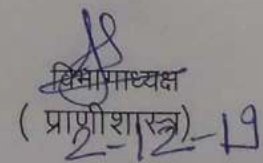 विभागाध्यक्ष
( प्राणीशास्त्र)
2-12-19